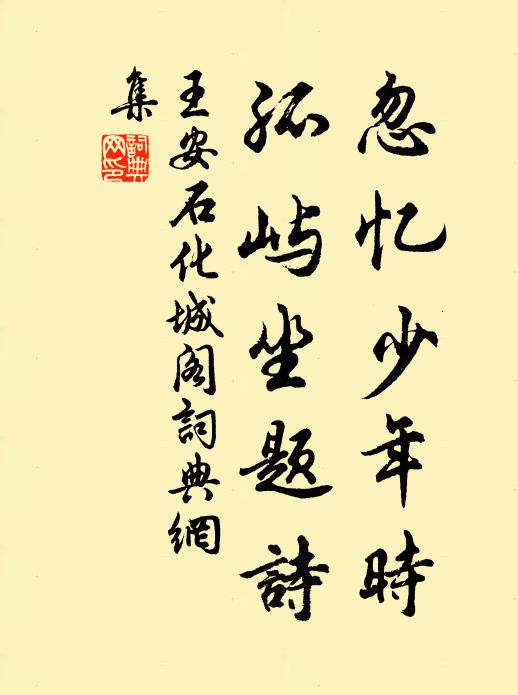 忽忆少年時
孤屿坐题詩
王安石化城阁詞典網
集
詞典网印